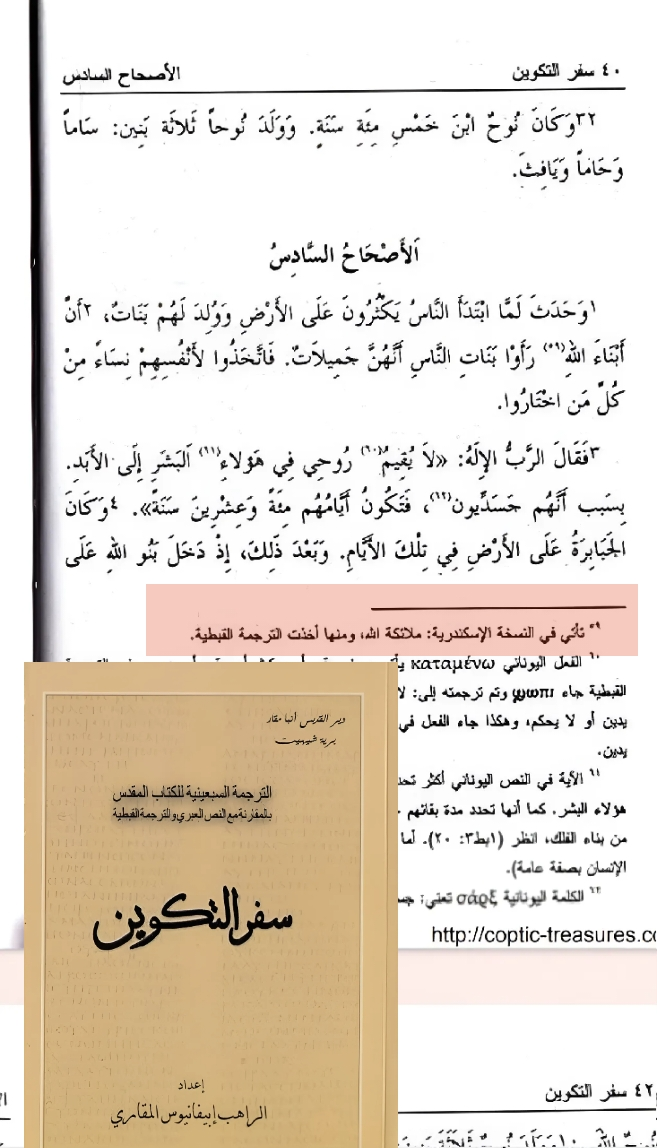 ٤٠ سفر التكوين
الأصحاح السادس
٣٢وَكَانَ نُوحٌ ابْنَ خَمْسِ مِئَةِ سَنَةٍ. وَوَلَدَ نُوحاً ثَلاَثَة بَنِين: سَاماً
وَحَاماً وَيَافِثَ.
اَلأَصْحَاحُ السَّادِسُ
١وَحَدَثَ لَمَّا ابْتَدَأَ النَّاسُ يَكْثُرُونَ عَلَى الأَرْضِ وَوُلِدَ لَهُمْ بَنَاتٌ، ٢أَنَّ
أَبْنَاءَ اللهِ(٥٩) رَأَوْا بَنَاتِ النَّاسِ أَنَّهُنَّ جَمِيلاَتٌ. فَاتَّخَذُوا لأَنْفُسِهِمْ نِسَاءً مِنْ
كُلِّ مَن اخْتَارُوا.
٣فَقَالَ الرَّبُّ الإِلَهُ: «لاَ يُقِيمُ(٦٠) رُوحِي فِي هَؤلاءِ(٦١) اَلبَشَرِ إِلَى الأَبَدِ.
بِسَبب أَنَّهُم جَسَدِّيون(٦٢)، فَتَكُونُ أَيَّامُهُم مِئَةً وَعِشْرِينَ سَنَةً». ٤وَكَانَ
الجَبَابِرَةُ عَلَى الأَرْضِ فِي تِلْكَ الأَيَّامِ. وَبَعْدَ ذَلِكَ، إِذْ دَخَلَ بَنُو اللهِ عَلَى
٥٩ تأتي في النسخة الإسكندرية: ملائكة الله، ومنها أخذت الترجمة القبطية.
٦٠ الفعل اليوناني καταμένω
القبطية جاء ϣωπι وتم ترجمته إلى: لا
يدين أو لا يحكم، وهكذا جاء الفعل في
يدين.
٦١ الآية في النص اليوناني أكثر
هؤلاء البشر. كما أنها تحدد مدة بقائهم
من بناء الفلك، انظر (١بط٣: ٢٠). أما
الإنسان بصفة عامة).
٦٢ الكلمة اليونانية σάρξ تعني:
http://coptic-treasures.c
دير القديس أنبا مقار
برية شيهيت
الترجمة السبعينية للكتاب المقدس
بالمقارنة مع النص العبري والترجمة القبطية
سفر التكوين
إعداد
الراهب إبيفانيوس المقاري
٤٢ سفر التكوين